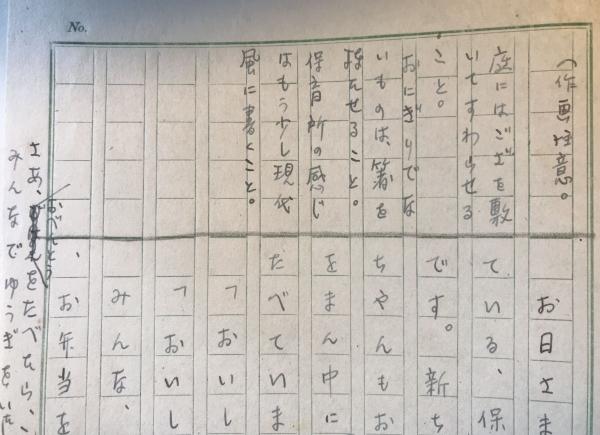 No.
（作画注意。
庭にはござを敷
いてすわらせる
こと。
おにぎりでな
いものは、箸を
持たせること。
保育所の感じ
はもう少し現代
風に書くこと。
お日さま
ている、保
です。新ち
ちゃんもお
をまん中に
たべていま
「おいし
「おいし
みんな、
、お弁当を
おべんとう
さあ、をたべたら、
みんなでゆうぎをいた